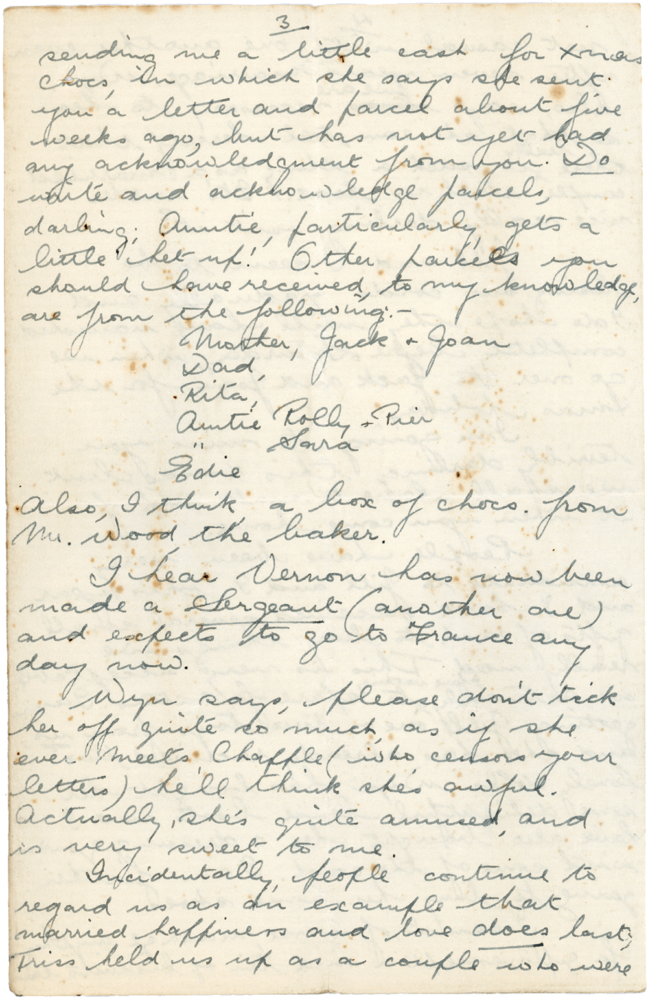 3
sending me a little cash for Xmas
chocs, in which she says she sent
you a letter and parcel about five
weeks ago, but has not yet had
any acknowledgment from you. Do
write and acknowledge parcels,
darling; Auntie, particularly, gets a
little het up! Other parcels you
should have received, to my knowledge,
are from the following:-
Mother, Jack + Joan
Dad,
Rita,
Auntie Polly + Pier
" Sara
Edie
Also, I think, a box of chocs. from
Mr. Wood, the baker.
I hear Vernon has now been
made a Sergeant (another one)
and expects to go to France any
day now.
Wyn says, please don't tick
her off quite so much as if she
ever meets Chaffle (who censors your
letters) he'll think she's awful.
Actually, she's quite amused, and
is very sweet to me.
Incidentally, people continue to
regard us as an example that
married happiness and love does last;
Triss held us up as a couple who were